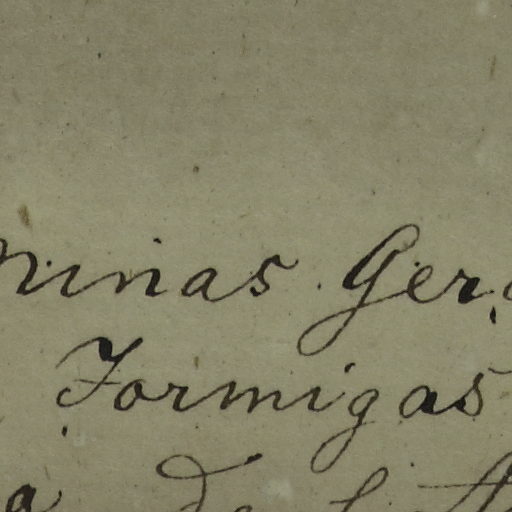 Minas Ger
Formigas
a de